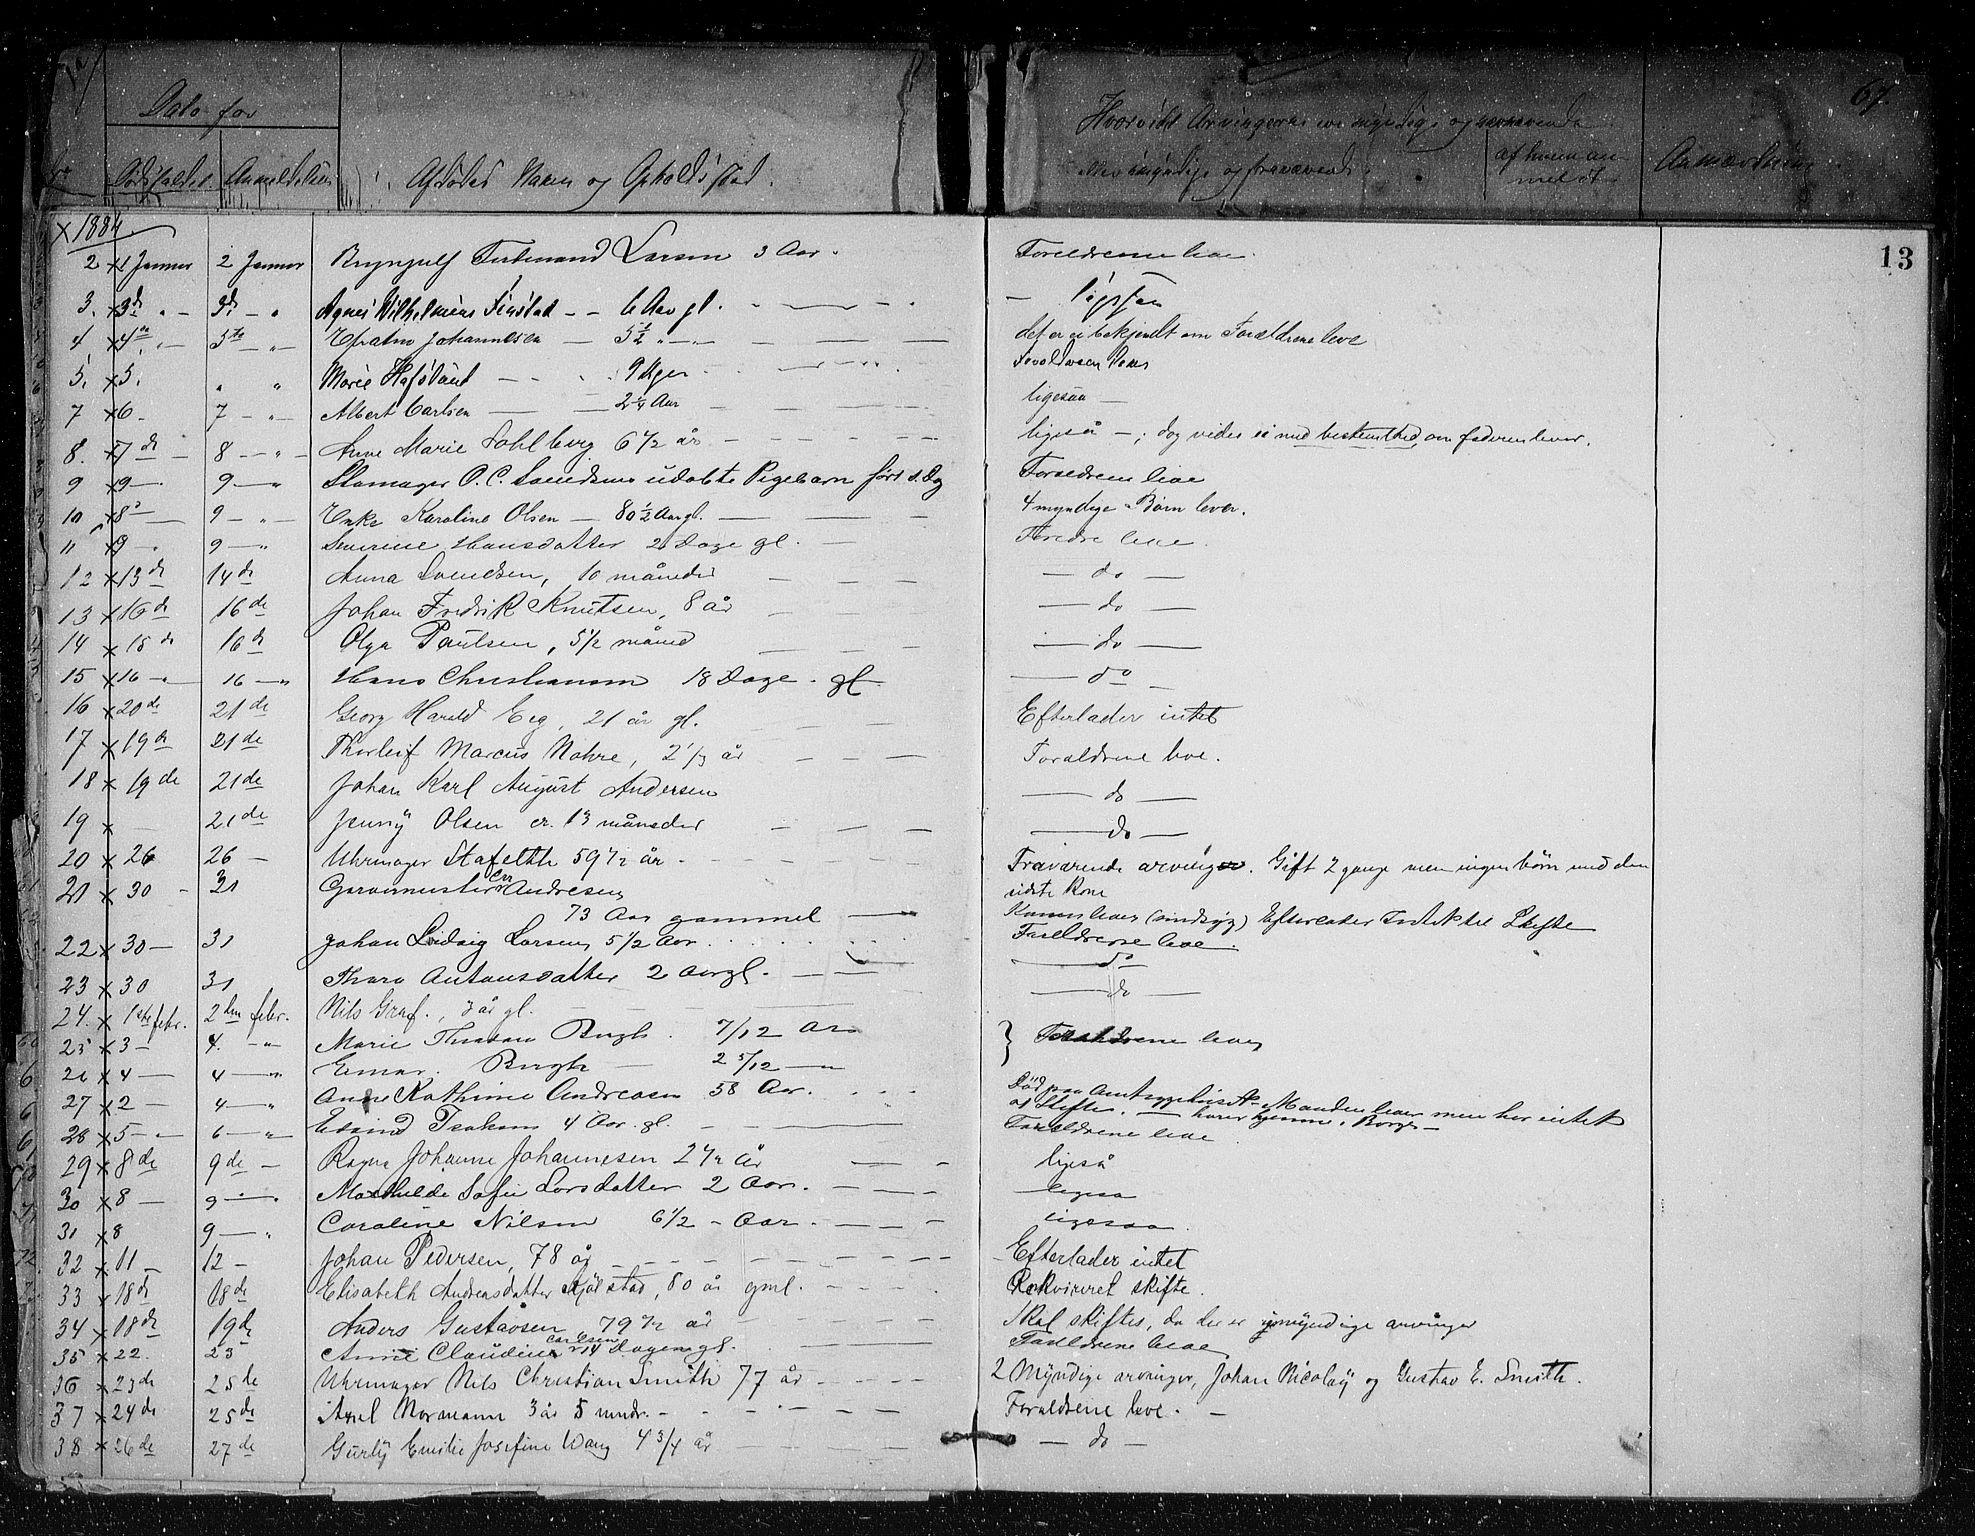 67.
Dato for
Hvorvidt Arvingerne ere myndige og nærværende
Dødsfaldet. Anmeldelsen
Afdødes Navn og Opholdssted.
eller umyndige og fraværende.
af hvem anmeldt
Anmærkning
13
1884
2 x 1 Januar 2 Januar Brynjulf Ferdinand Larsen 3 Aar. Foreldrene leve.
3. x 3d " 3d - " Agnes Vilhelmine Finstad - - 6 Aar gl. — ligesaa
4 x 4de " 5te - " Johannesen — 5 1/2 " det er ei bekjendt om Forældrene leve
5. x 5. " " Marie Hafslund - - 9 Uger Forældrene leve
7 x 6 - 7 - " - Albert Carlsen — 2 1/4 Aar ligesaa —
8. x 7de - 8 - " - Anne Marie Dahlberg 6 1/2 år ligeså - ; dog vides ei med bestemthed, om faderen lever.
9 x 9 — 9 - " O. C. Svendsens udøbte Pigebarn født s. Dag Foreldrene leve
10 x 8 — 9 - " - Enke Karoline Olsen — 80 1/2 Aar gl. 4 myndige Børn lever.
11 x 9 - " 9 - " Severine Hansdatter 2 Dage gl. leve.
12 x 13de 14de Anna Svendsen, 10 måneder — do —
13 x 16de 16de Johan Fredrik Knutsen, 8 år — do —
14 x 15de 16de Olga Paulsen, 5 1/2 måned — do —
15 x 16 - " 16 - " Hans Christiansen 18 Dage gl — do —
16 x 20de 21de Georg Harald Eeg, 21 år gl. Efterlader intet
17 x 19de 21de Thorleif Marcus Nohre, 2 1/3 år Forældrene leve.
18 x 19de 21de Johan Karl August Andersen — do —
19 x — 21de Jenny Olsen ca. 13 måneder — do —
20 x 26 26 - Uhrmager Stafeldt 59 1/2 år - Fraværende arving. Gift 2 gange men ingen børn med den
sidste Kone
21 x 30 - 31 Garvermester Chr Andresen,
73 Aar gammel — Konen lever (sindsyg) Efterlader Intet til Skifte
22 x 30 - 31 Johan Ludvig Larsen, 5 1/2 Aar. Forældrene leve.
23 x 30 31 Thora Antonsdatter 2 Aar gl. — do
24. x 1ste febr. 2den febr. Nils Graf., 3 år gl. — do —
25 x 3 - 4. - " Marie Bugh. 7/12 Aar } Forældrene leve
26 x 4 — 4 — " Einar. Bugh 2 5/12 — "
27 x 2 — 4 — " Anne Kathrine Andreasen 58 Aar. Død paa Amtssygehuset - Manden lever men har intet
at skifte. — hører hjemme i Borge -
28 x 5 - " 6 - " Edvind Isaksen 4 Aar. gl. Forældrene leve
29 x 8de 9de - Ragna Johanne Johannesen 2 1/2 år ligeså
30 x 8 — 9 — " Mathilde Sofie Larsdatter 2 Aar. ligesaa
31 x 8 9 — " Caroline Nilsen 6 1/2 - Aar. ligesaa.
32 x 11 - 12 - Johan Pedersen, 78 år Efterlader intet
33 x 18de 18de Elisabeth Andreasdatter Kjølstad, 80 år gml. Rekvireret skifte.
34 x 18de 19de Anders Gustavsen 79 1/2 år Skal skiftes, da der er umyndige arvinger
35 x 22. 23 Annie Claudine Carlsen 14 Dagen gl. Forældrene leve
36 x 23de 25de Uhrmager Nils Christian Smith 77 år 2 Myndige arvinger, Johan Nicolaÿ og Gustav E. Smith.
37 x 24de 25de Axel Normann 3 år 5 mndr. Forældrene leve.
38 x 26de 27de Gurly Emilie Josefine Wang 4 3/4 år — do —